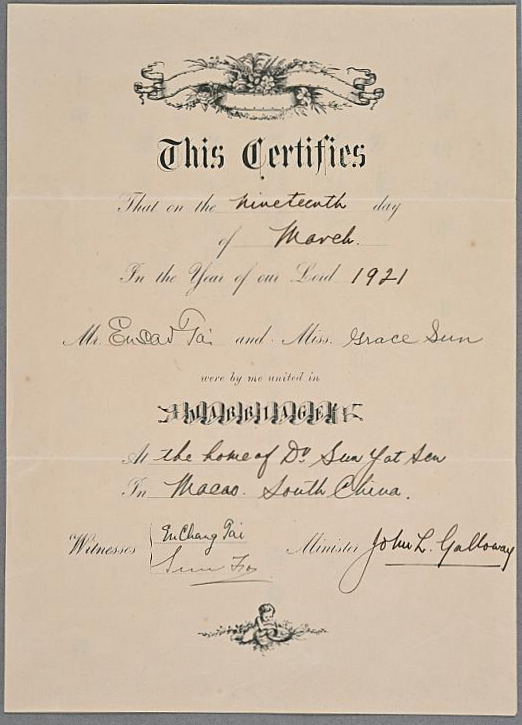 This Certifies
That on the nineteenth day
of March.
In the Year of our Lord 1921
Mr. Tai and Miss. Grace Sun
were by me united in
MARRIAGE
At the home of Dr Sun Yat Sen
In Macao. South China.
Witnesses
En Chang Tai
Sun Fo
Minister John L. Galloway